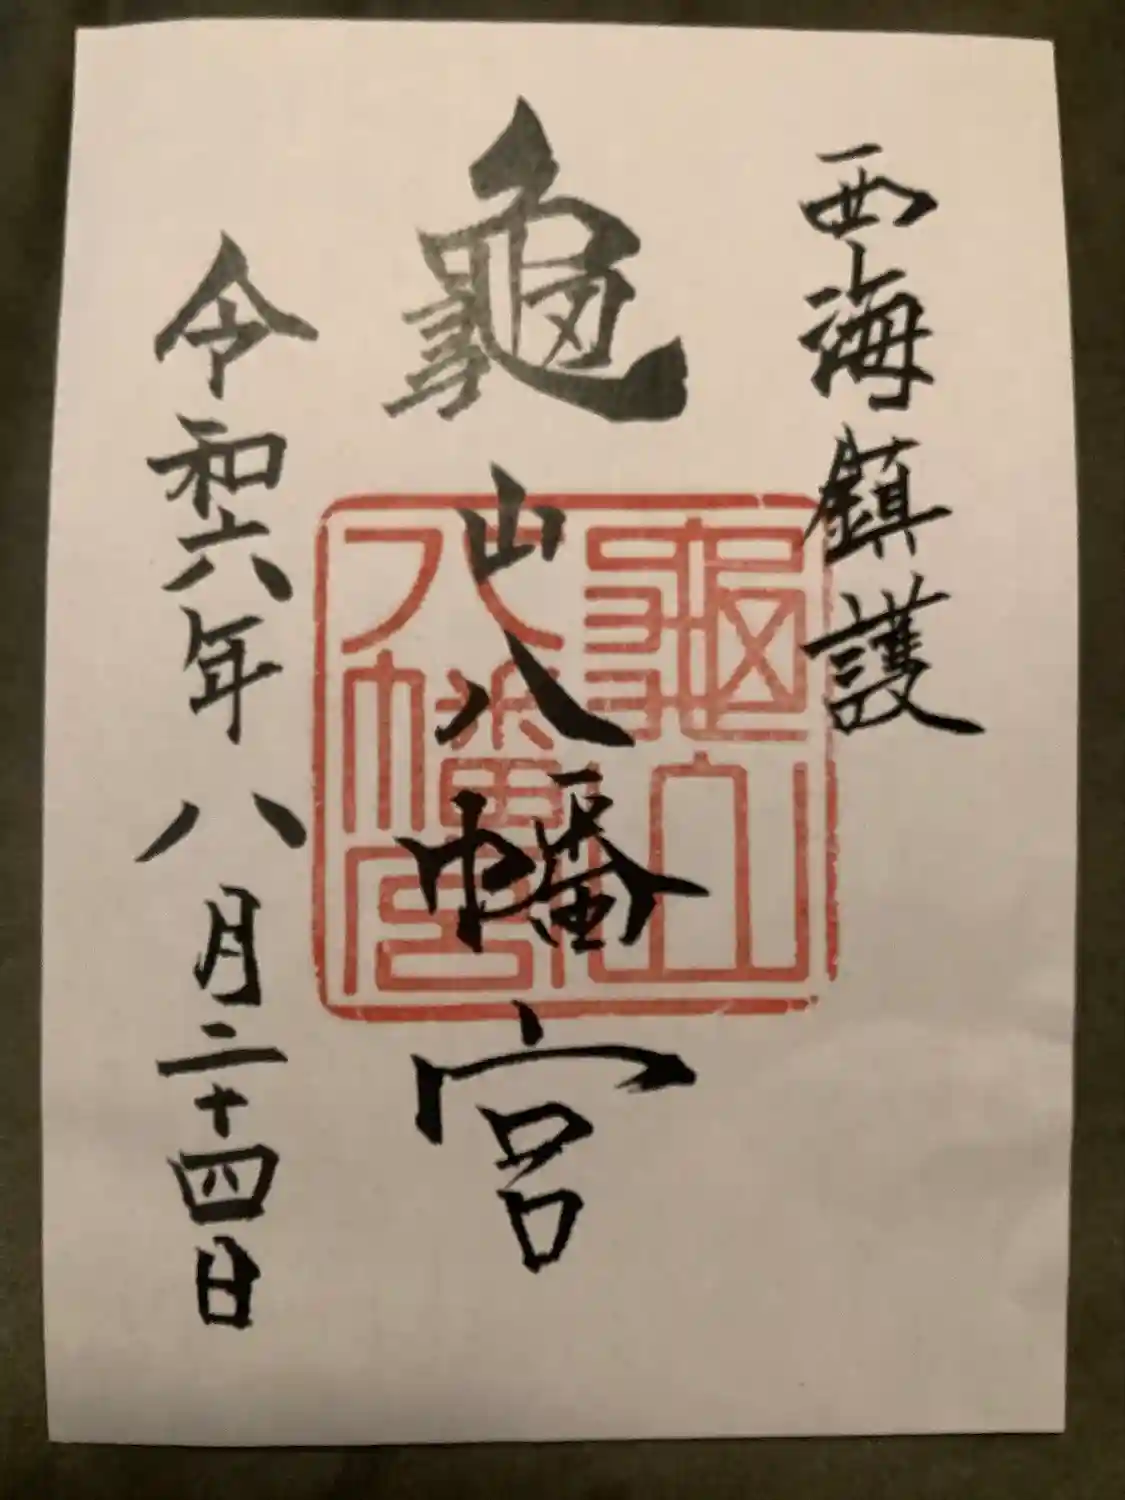 西海鎮護
龜山八幡宮
令和六年八月二十四日
龜山八幡宮